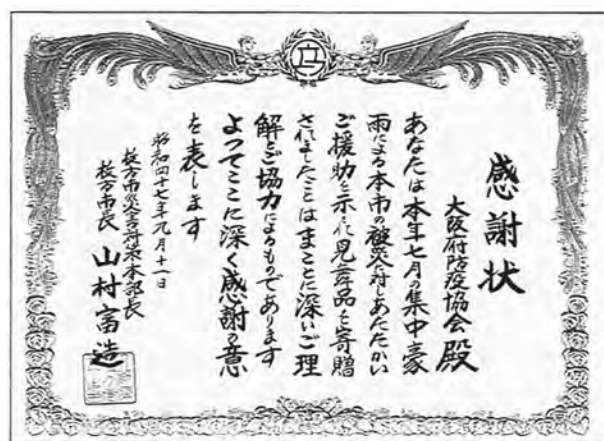 感謝状
大阪府防疫協会殿
あなたは本年七月の集中豪
雨による本市の被災に対しあたたかい
ご援助を示され見舞品を寄贈
されましたことはまことに深いご理
解とご協力によるものであります
よってここに深く感謝の意
を表します
昭和四十七年九月十一日
枚方市災害対策本部長
枚方市長 山村富造